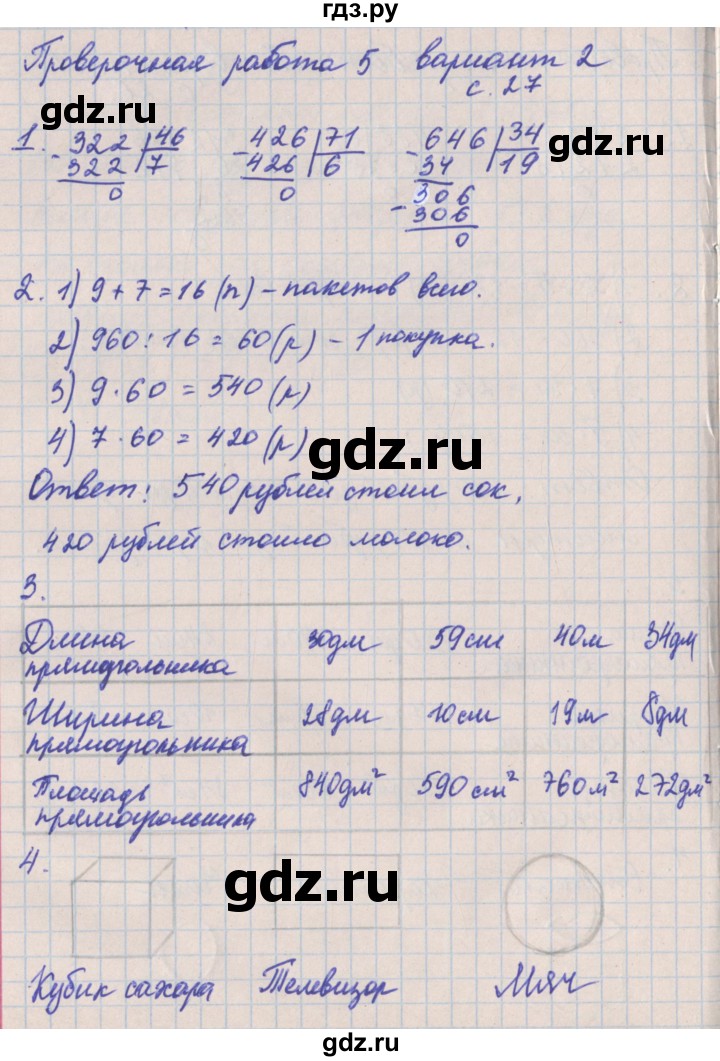 гдз.ру
Проверочная работа 5 вариант 2
с. 27
gdz.ru
gdz.ru
1. - 322 | 46 - 426 | 71 - 646 | 34
322 | 7 426 | 6 34 | 19
0 0 306
- 306
0
2. 1) 9 + 7 = 16 (п) – пакетов всего.
2) 960 : 16 = 60 (р) – 1 покупка.
3) 9 · 60 = 540 (р)
4) 7 · 60 = 420 (р)
gdz.ru
Ответ: 540 рублей стоил сок,
420 рублей стоило молоко.
3.
Длина прямоугольника 30дм 59см 40м 34дм
Ширина прямоугольника 28дм 10см 19м 8дм
Площадь прямоугольника 840дм² 590см² 760м² 272дм²
4.
gdz.ru
Кубик сахара Телевизор Мяч
gdz.ru